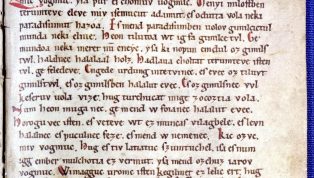 mic vogmuc. yſa pur eſ chomuv uogmuc. Menyi miloſtben
terumteve eleve miv iſemucut adamut. eſ odutta vola neki
paradiſumut hazóá. Eſ mend paradiſumben uolov gimilcictul
munda neki elnie. Heon tilutoa wt ig fa gimilce tvl. Ge
mundoa neki meret nu eneyc. yſa ki nopun emdul oz gimilſ
twl. halalnec halaláál holz. Hadlaua choltat terumteve iſten
tvl. ge feledeve. Engede urdung intetvinec. eſ evec oz tiluvt
gimilſtwl. eſ oz gimilſben halalut evec. Eſ oz gimilſnec vvl
keſeruv uola vize. hug turchucat mige zocoztia vola.
Num heon muga nec. ge mend w foianec halalut evec.
Horogu vec iſten. eſ veteve wt ez muncaſ vilagbele. eſ levn
halalnec eſ puculnec feze. eſ mend w nemenec. Kic ozvc.
miv vogmuc. Hug eſ tiv latiatuv ſzumtuchel. iſa eſ num
igg ember mulchotia ez vermut. yſa mend ozchuz iarov
vogmuc. Wimagguc uromv iſten kegilmet ez lelic ert. hug